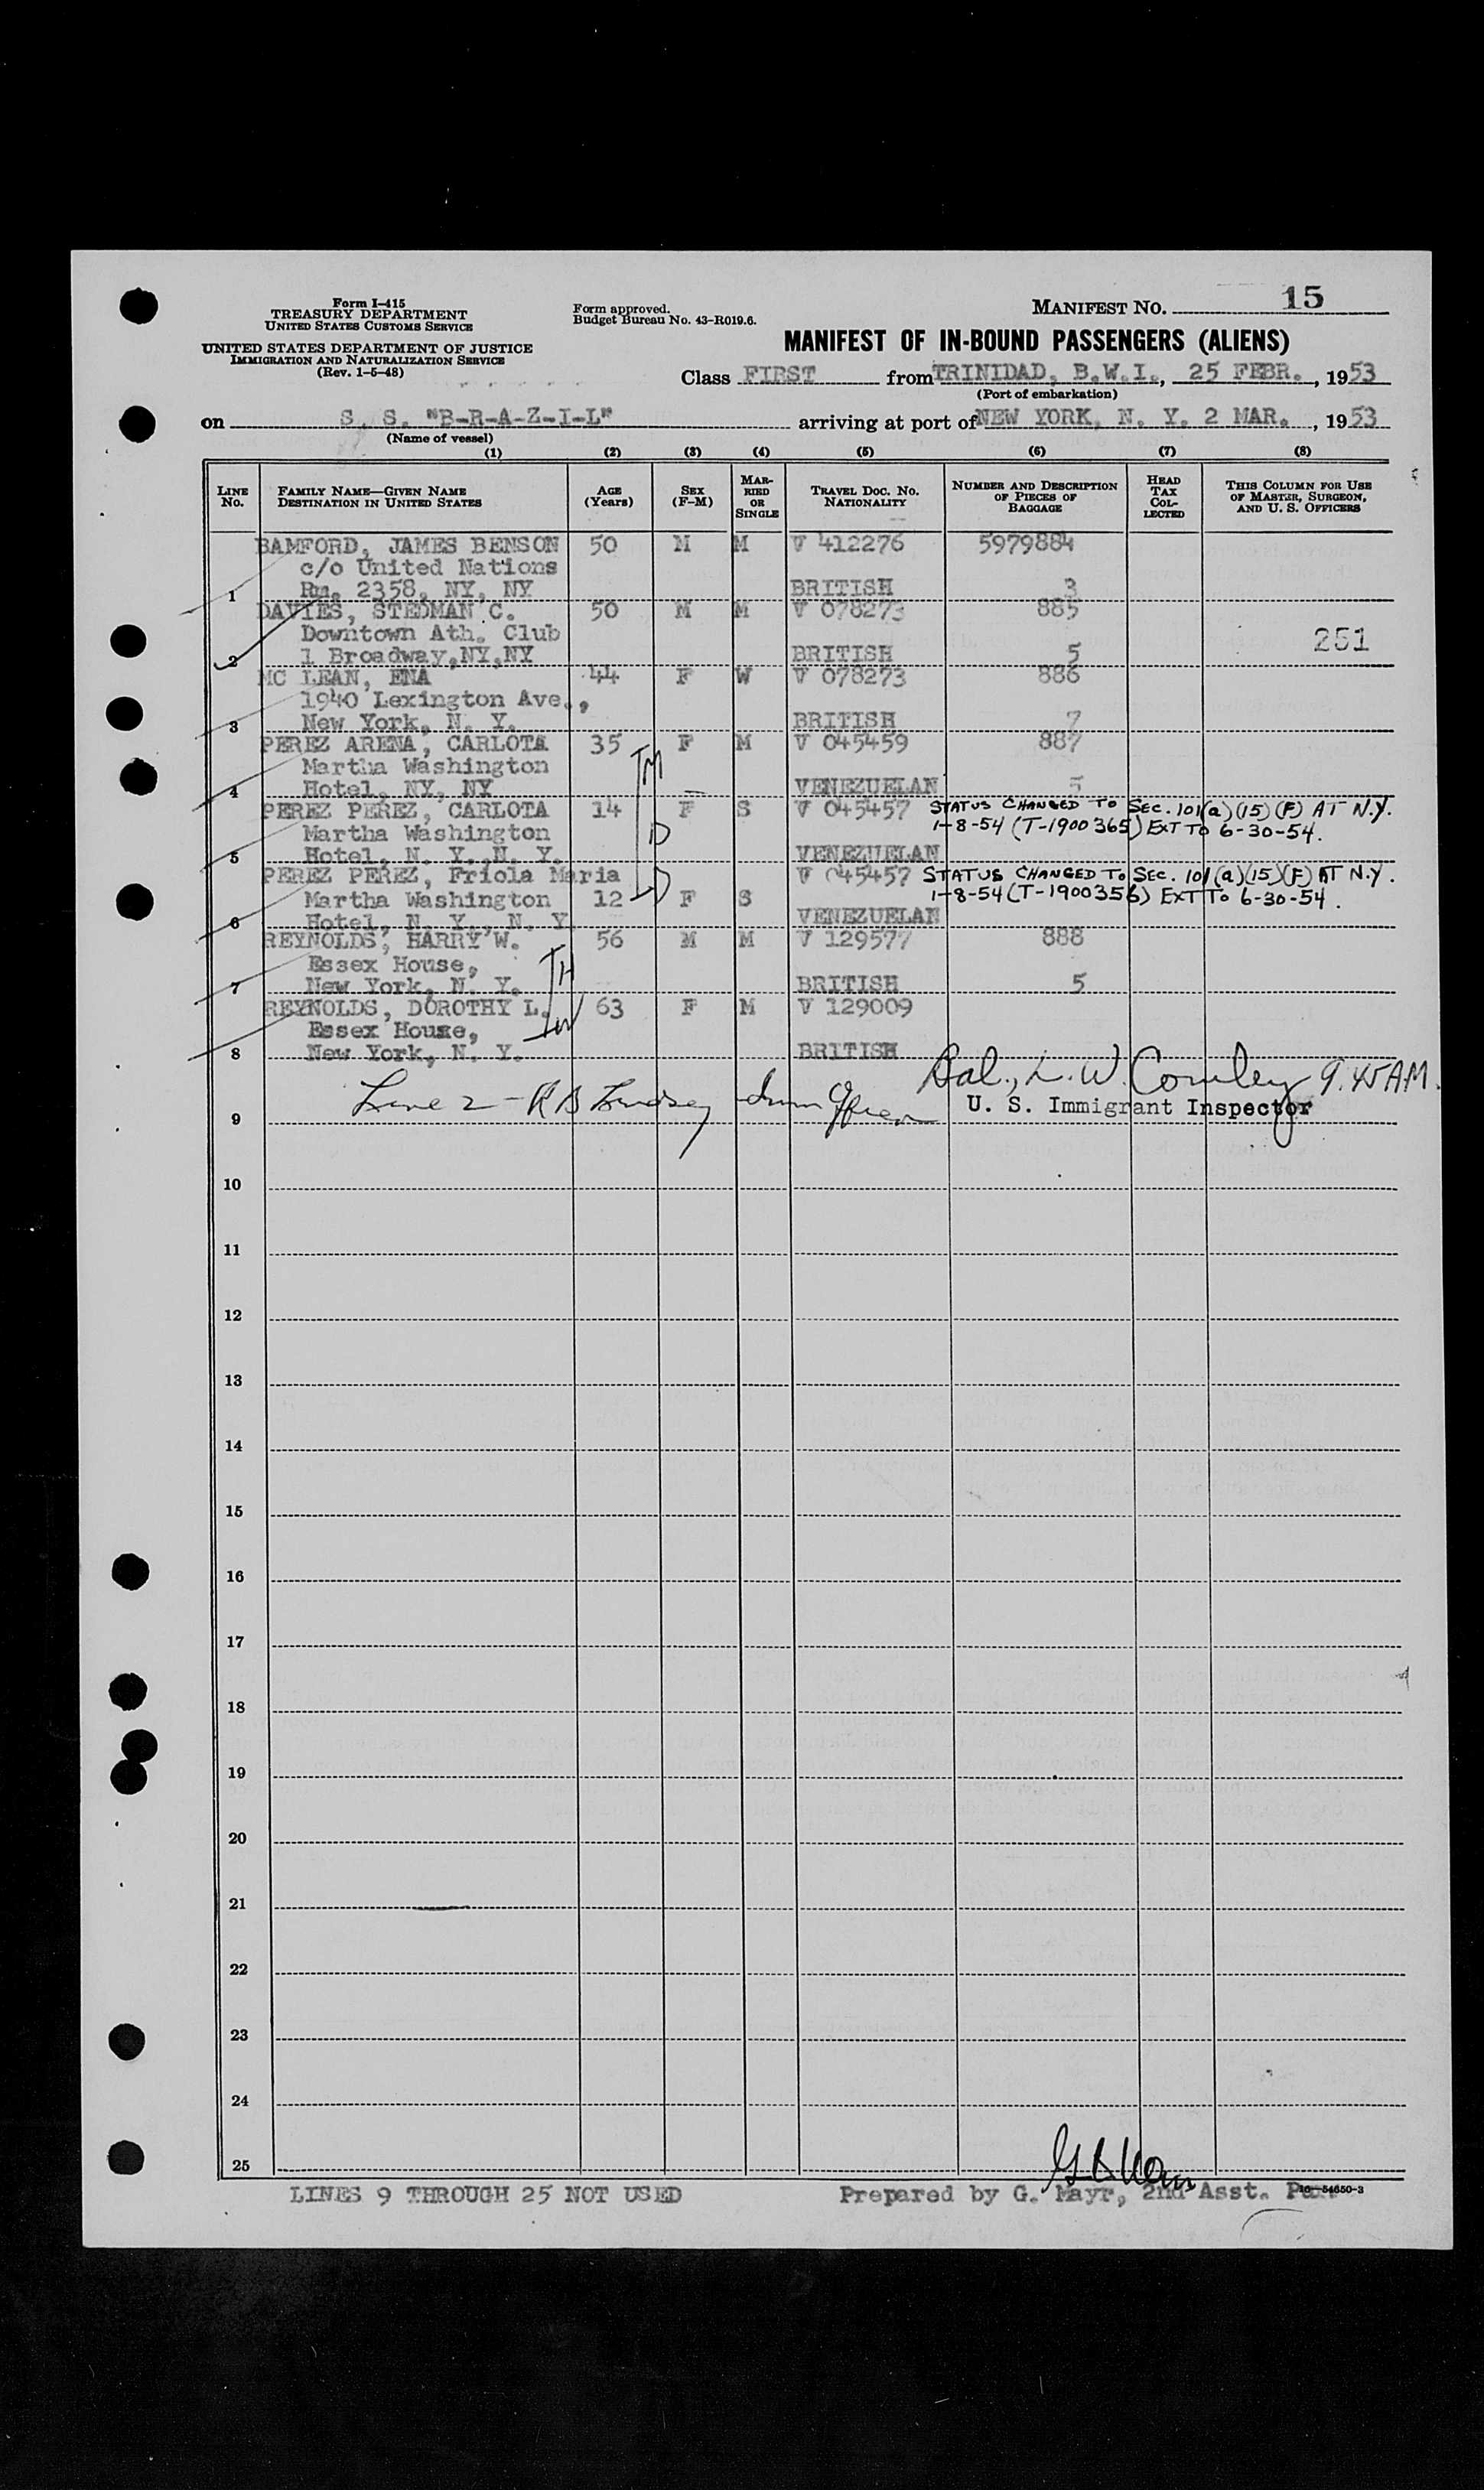 Form I-415
TREASURY DEPARTMENT
UNITED STATES CUSTOMS SERVICE
UNITED STATES DEPARTMENT OF JUSTICE
IMMIGRATION AND NATURALIZATION SERVICE
(Rev. 1-5-48)
Form approved.
Budget Bureau No. 43-R019.6.
MANIFEST NO. 15
MANIFEST OF IN-BOUND PASSENGERS (ALIENS)
Class FIRST from TRINIDAD, B.W.I., 25 FEBR., 1953
(Port of embarkation)
on S. S. "B-R-A-Z-I-L" arriving at port of NEW YORK, N. Y. 2 MAR., 1953
(Name of vessel)
(1) (2) (3) (4) (5) (6) (7) (8)
LINE No. FAMILY NAME—GIVEN NAME DESTINATION IN UNITED STATES AGE (Years) SEX (F-M) MARRIED OR SINGLE TRAVEL DOC. NO. NATIONALITY NUMBER AND DESCRIPTION OF PIECES OF BAGGAGE HEAD TAX COLLECTED THIS COLUMN FOR USE OF MASTER, SURGEON, AND U. S. OFFICERS
BAMFORD, JAMES BENSON 50 M M V 412276 5979884
c/o United Nations
1 Rm. 2358, NY, NY BRITISH 3
DAVIES, STEDMAN C. 50 M M V 078273 885
Downtown Ath. Club 251
2 1 Broadway,NY,NY BRITISH 5
MC LEAN, ENA 44 F W V 078273 886
1940 Lexington Ave.,
3 New York, N. Y. BRITISH 7
PEREZ ARENA, CARLOTA 35 F M V 045459 887
Martha Washington M
4 Hotel, NY, NY VENEZUELAN 5
PEREZ PEREZ, CARLOTA 14 F S V 045457 STATUS CHANGED TO SEC. 101(a)(15)(F) AT N.Y.
Martha Washington D 1-8-54 (T-1900365) EXT TO 6-30-54.
5 Hotel, N. Y.,N. Y. VENEZUELAN
PEREZ PEREZ, Friola Maria V 045457 STATUS CHANGED TO SEC. 101(a)(15)(F) AT N.Y.
Martha Washington 12 D F S 1-8-54 (T-1900356) EXT TO 6-30-54.
6 Hotel, N. Y., N. Y. VENEZUELAN
REYNOLDS, HARRY W. 56 M M V 129577 888
Essex House, H
7 New York, N. Y. BRITISH 5
REYNOLDS, DOROTHY L. 63 F M V 129009
Essex House, W
8 New York, N. Y. BRITISH
Bal., L. W. Conley 9.45 AM.
Line 2 - R B Lindsey
9 U. S. Immigrant Inspector
10
11
12
13
14
15
16
17
18
19
20
21
22
23
24
25
LINES 9 THROUGH 25 NOT USED Prepared by G. Mayr, 2nd Asst. 16-54650-3